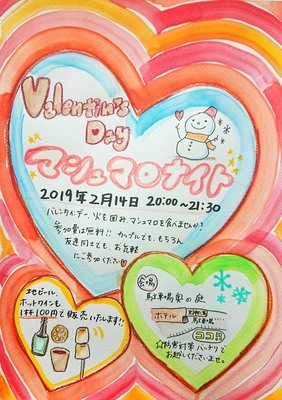 Valentin's
Day
マシュマロナイト
2019年2月14日 20:00~21:30
バレンタインデー、火を囲み、マシュマロを食べませんか?
参加費は無料!! カップルでも、もちろん
友達同士でも、お気軽
にご参加ください
地ビール、
ホットワインも
1杯100円で販売いたします!!
会場
駐車場奥の庭
ホテル
駐車場
ココ!!
☆防寒対策バッチリで
お越しくださいませ。